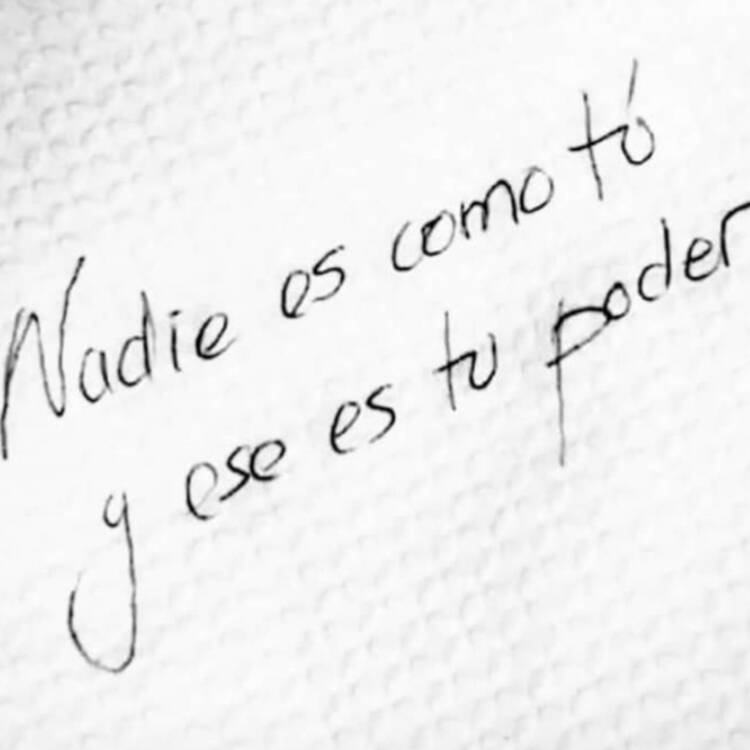 Nadie es como tú
y ese es tu poder